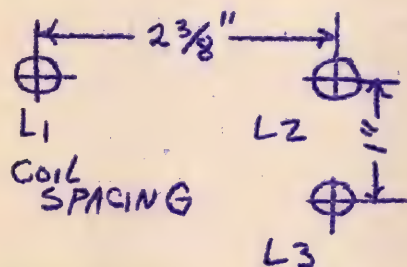 2 3/8"
L1
L2
1"
COIL
SPACING
L3